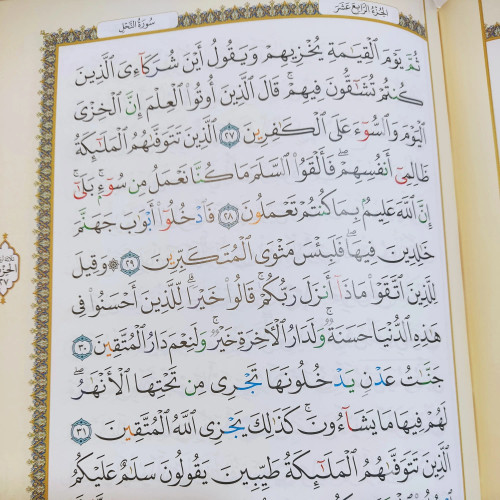 الجزء الرابع عشر
سورة النحل
ثُمَّ يَوْمَ الْقِيَامَةِ يُخْزِيهِمْ وَيَقُولُ أَيْنَ شُرَكَاءِيَ الَّذِينَ
كُنتُمْ تُشَاقُّونَ فِيهِمْ ۚ قَالَ الَّذِينَ أُوتُوا الْعِلْمَ إِنَّ الْخِزْيَ
الْيَوْمَ وَالسُّوءَ عَلَى الْكَافِرِينَ ٢٧ الَّذِينَ تَتَوَفَّاهُمُ الْمَلَائِكَةُ
ظَالِمِي أَنفُسِهِمْ ۖ فَأَلْقَوُا السَّلَمَ مَا كُنَّا نَعْمَلُ مِن سُوءٍ ۚ بَلَىٰ ۚ
إِنَّ اللَّهَ عَلِيمٌ بِمَا كُنتُمْ تَعْمَلُونَ ٢٨ فَادْخُلُوا أَبْوَابَ جَهَنَّمَ
خَالِدِينَ فِيهَا ۖ فَلَبِئْسَ مَثْوَى الْمُتَكَبِّرِينَ ٢٩ ۞ وَقِيلَ
لِلَّذِينَ اتَّقَوْا مَاذَا أَنزَلَ رَبُّكُمْ ۚ قَالُوا خَيْرًا ۗ لِّلَّذِينَ أَحْسَنُوا فِي
هَٰذِهِ الدُّنْيَا حَسَنَةٌ ۚ وَلَدَارُ الْآخِرَةِ خَيْرٌ ۚ وَلَنِعْمَ دَارُ الْمُتَّقِينَ ٣٠
جَنَّاتُ عَدْنٍ يَدْخُلُونَهَا تَجْرِي مِن تَحْتِهَا الْأَنْهَارُ ۖ
لَهُمْ فِيهَا مَا يَشَاءُونَ ۚ كَذَٰلِكَ يَجْزِي اللَّهُ الْمُتَّقِينَ ٣١
الَّذِينَ تَتَوَفَّاهُمُ الْمَلَائِكَةُ طَيِّبِينَ ۙ يَقُولُونَ سَلَامٌ عَلَيْكُمُ